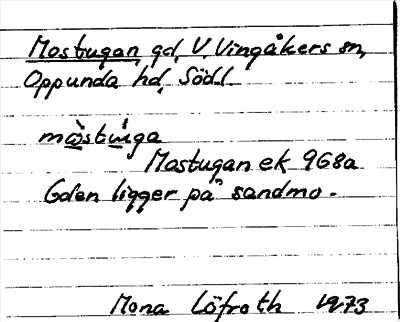 Mostugan, gd, V. Vingåkers sn,
Oppunda hd, Södl.
Mostugan ek 9G8a
Gden ligger på sandmo.
Mona Löfroth 1973